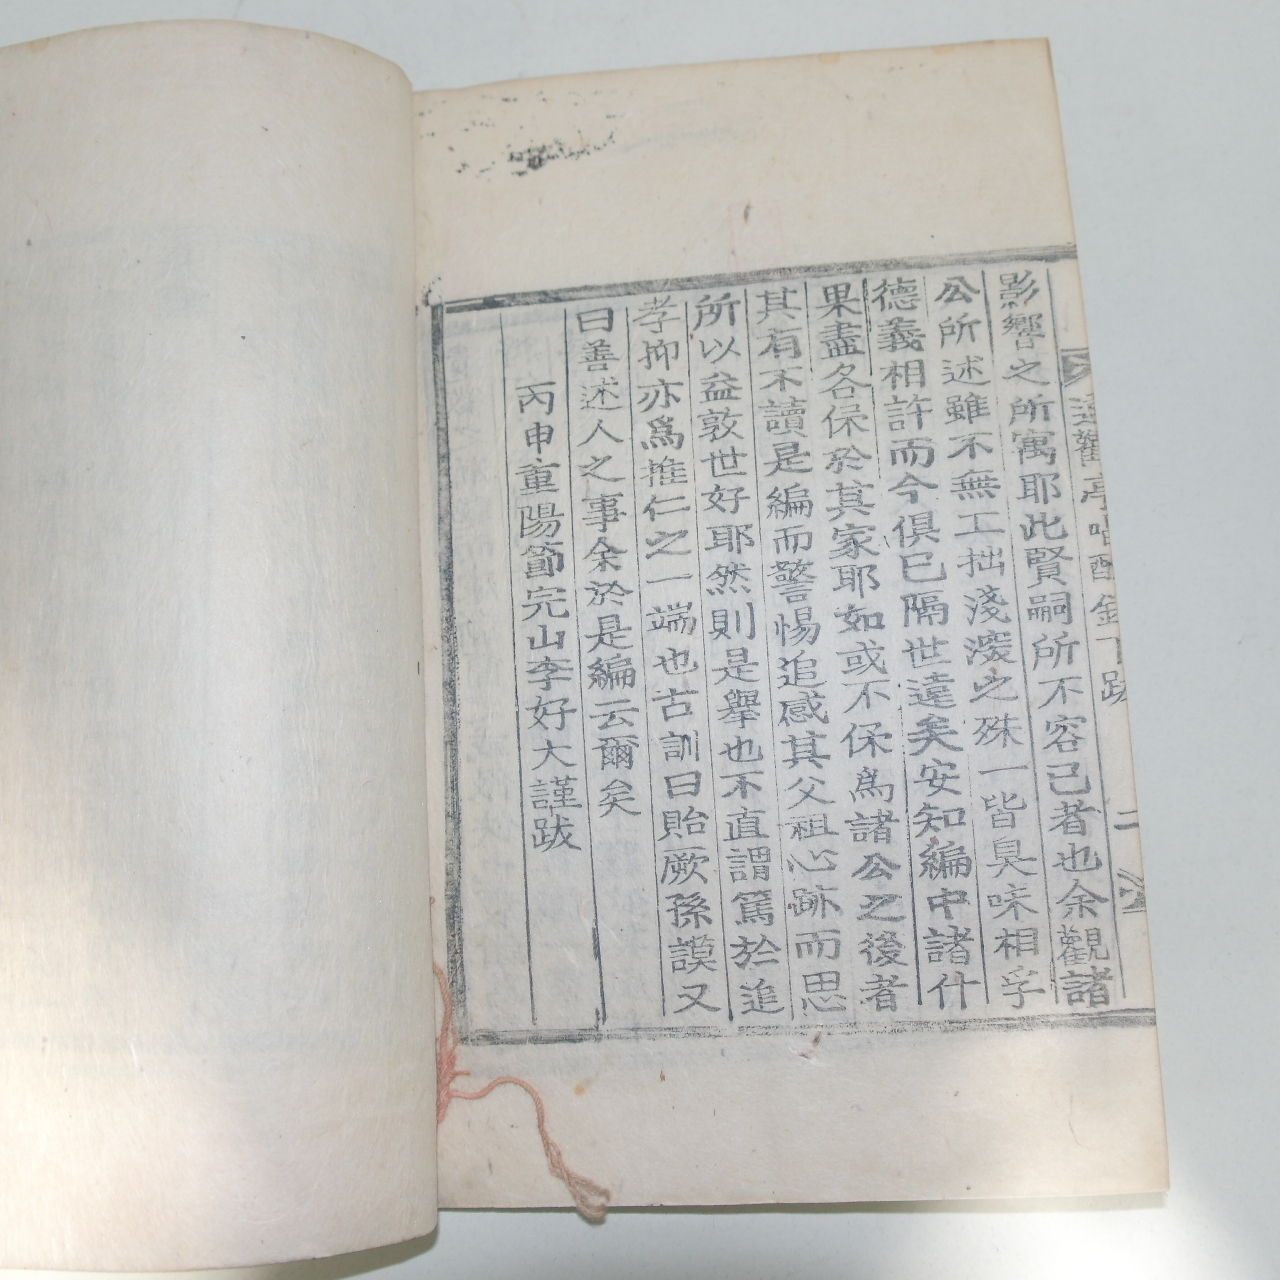 遠觀亭唱酬錄下跋 二
影響之所寓耶此賢嗣所不容已者也余觀諸
公所述雖不無工拙淺深之殊一皆臭味相孚
德義相許而今俱已隔世遠矣安知編中諸什
果盡各保於其家耶如或不保爲諸公之後者
其有不讀是編而警惕追感其父祖心跡而思
所以益敦世好耶然則是擧也不直謂篤於追
孝抑亦爲推仁之一端也古訓曰貽厥孫謨又
曰善述人之事余於是編云爾矣
丙申重陽節完山李好大謹跋